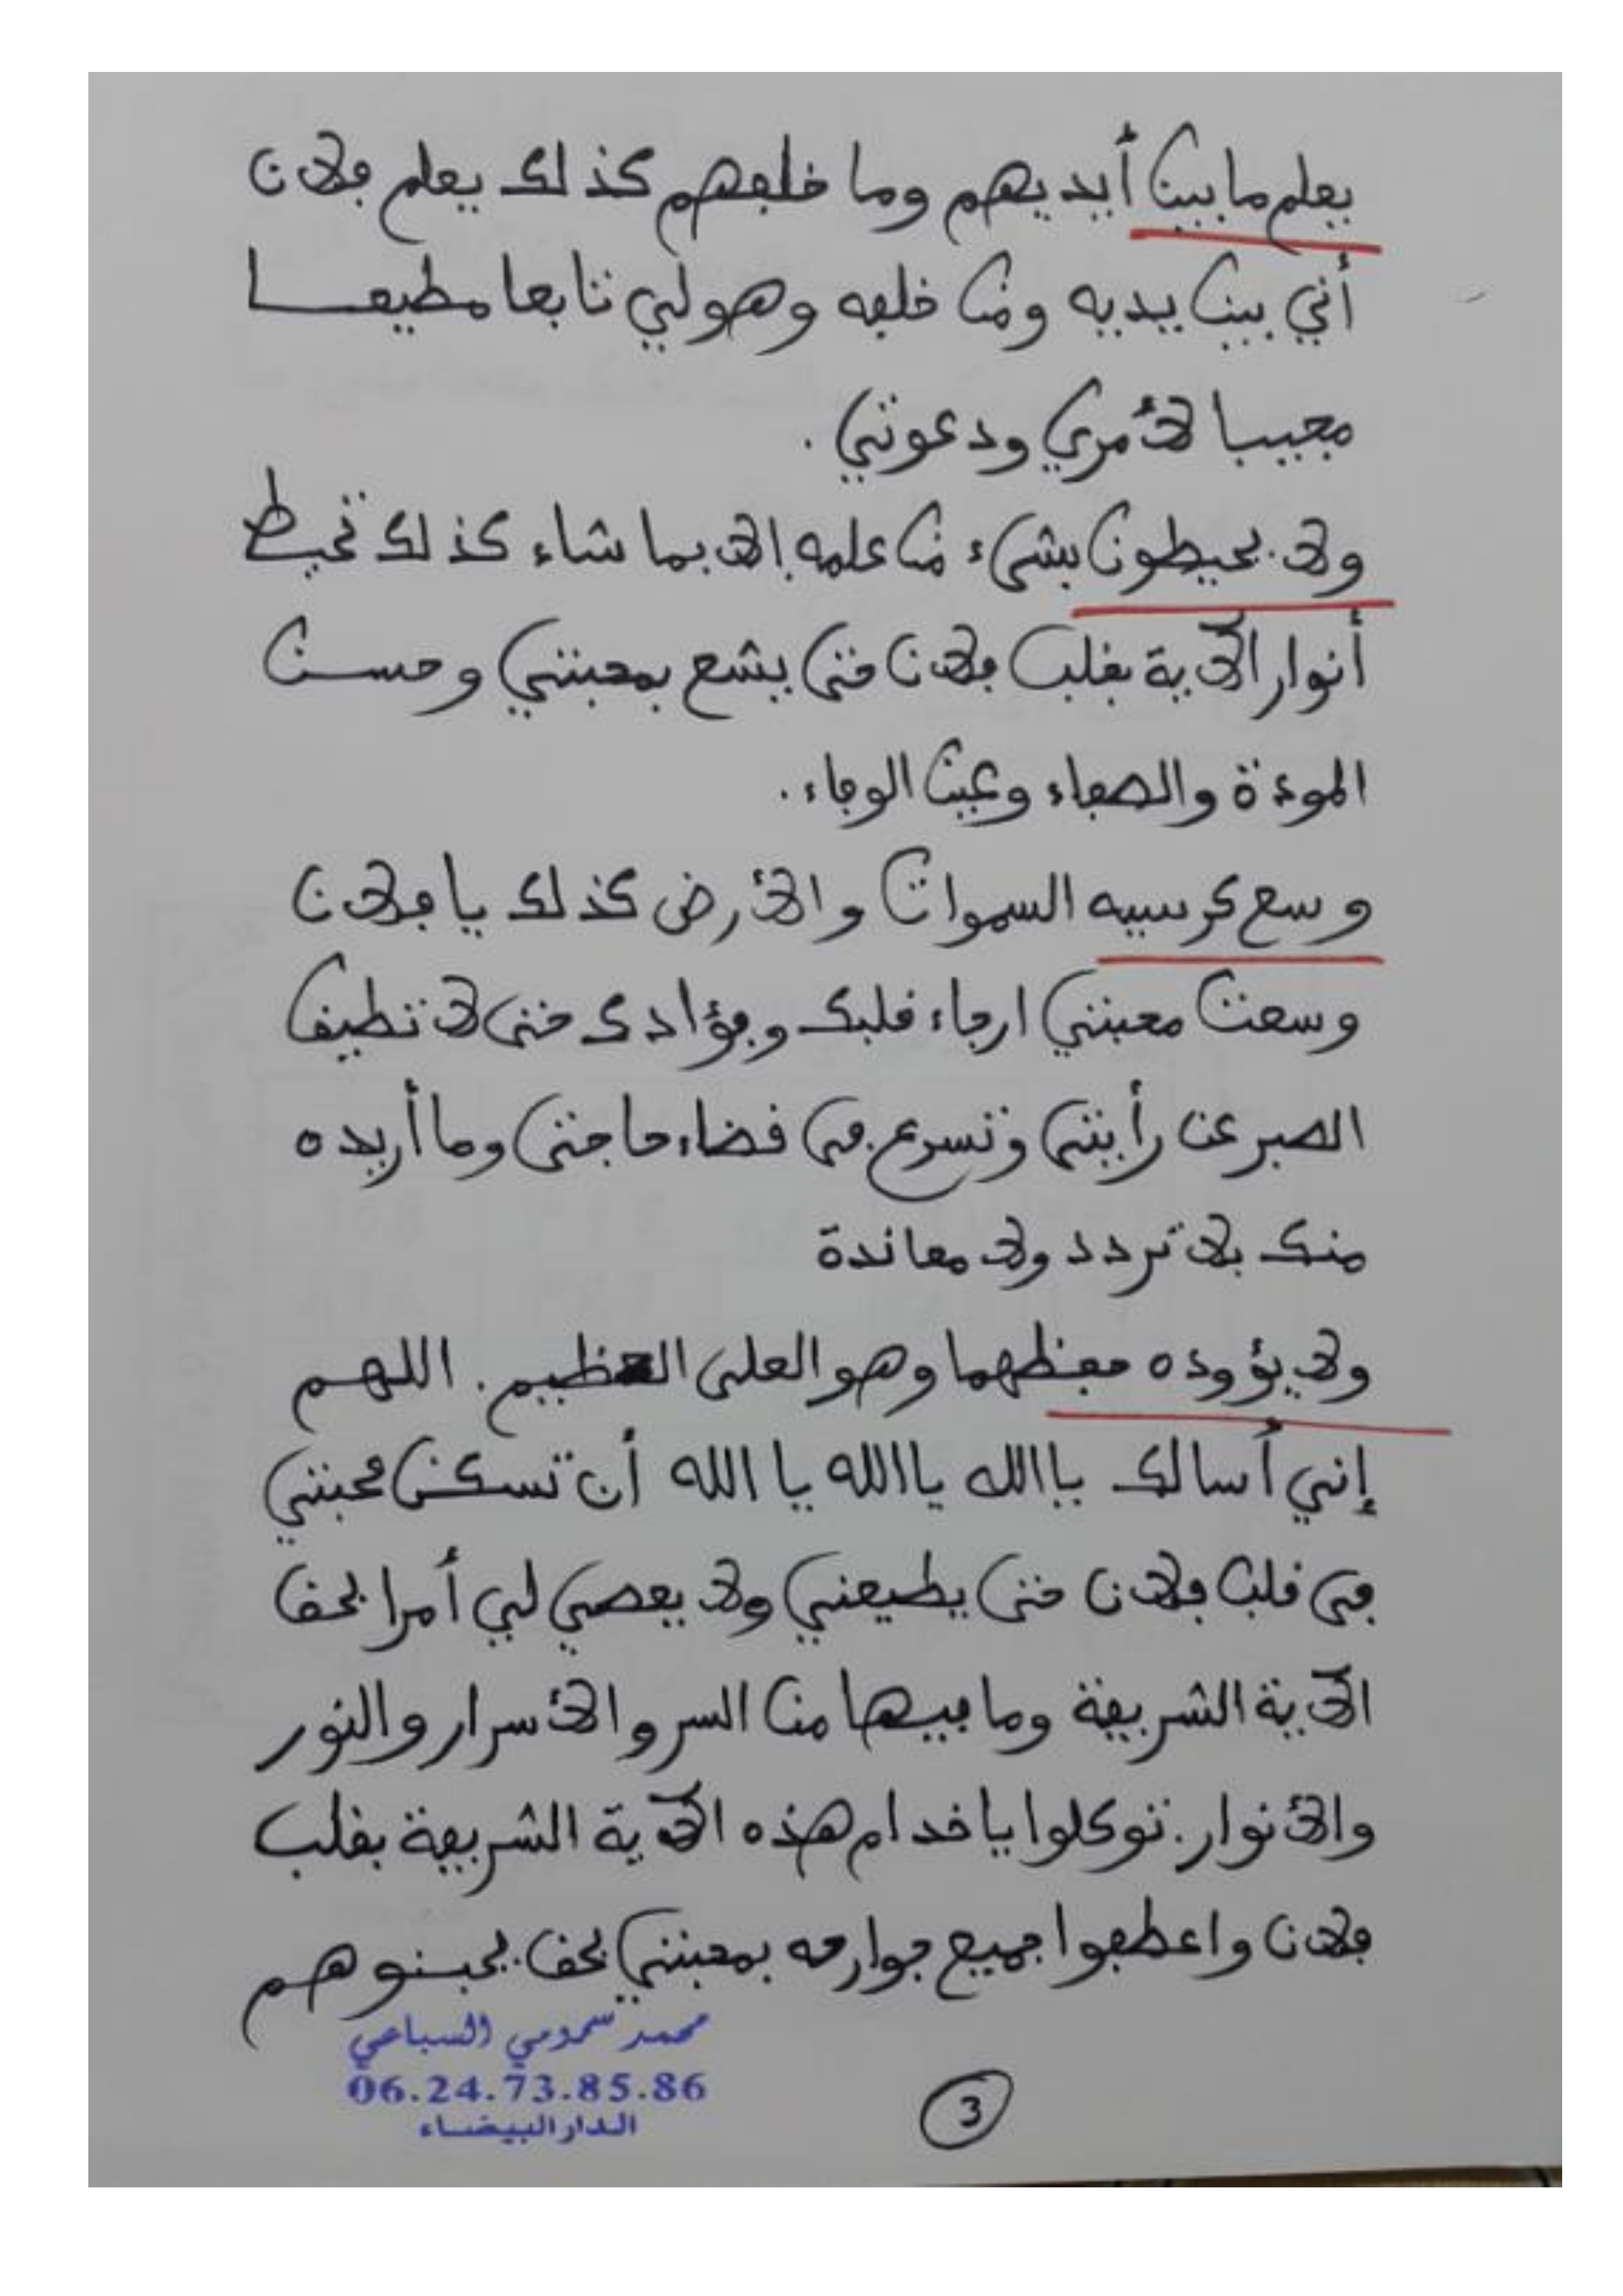 يعلم ما بين أيديهم وما خلفهم كذلك يعلم فلان
أني بين يديه ومن خلفه وهو لي تابعا مطيعا
مجيبا لأمري ودعوتي.
ولا يحيطون بشيء من علمه إلا بما شاء كذلك تحيط
أنوار الآية بقلب فلان حتى يشع بمحبتي وحسن
المودة والصفاء وعين الوفاء.
وسع كرسيه السموات والأرض كذلك يا فلان
وسعت محبتي ارجاء قلبك وفؤادك حتى لا تطيق
الصبر عن رأيتي وتسرع في قضاء حاجتي وما أريده
منك بلا تردد ولا معاندة
ولا يؤوده حفظهما وهو العلي العظيم. اللهم
إني أسالك يا الله يا الله يا الله أن تسكن محبتي
في قلب فلان حتى يطيعني ولا يعصي لي أمرا بحق
الآية الشريفة وما فيها من السر والأسرار والنور
والأنوار. توكلوا يا خدام هذه الآية الشريفة بقلب
فلان واعطفوا جميع جوارحه بمحبتي بحق يحبنوهم
محمد سمومي السباعي
06.24.73.85.86
الدار البيضاء
3